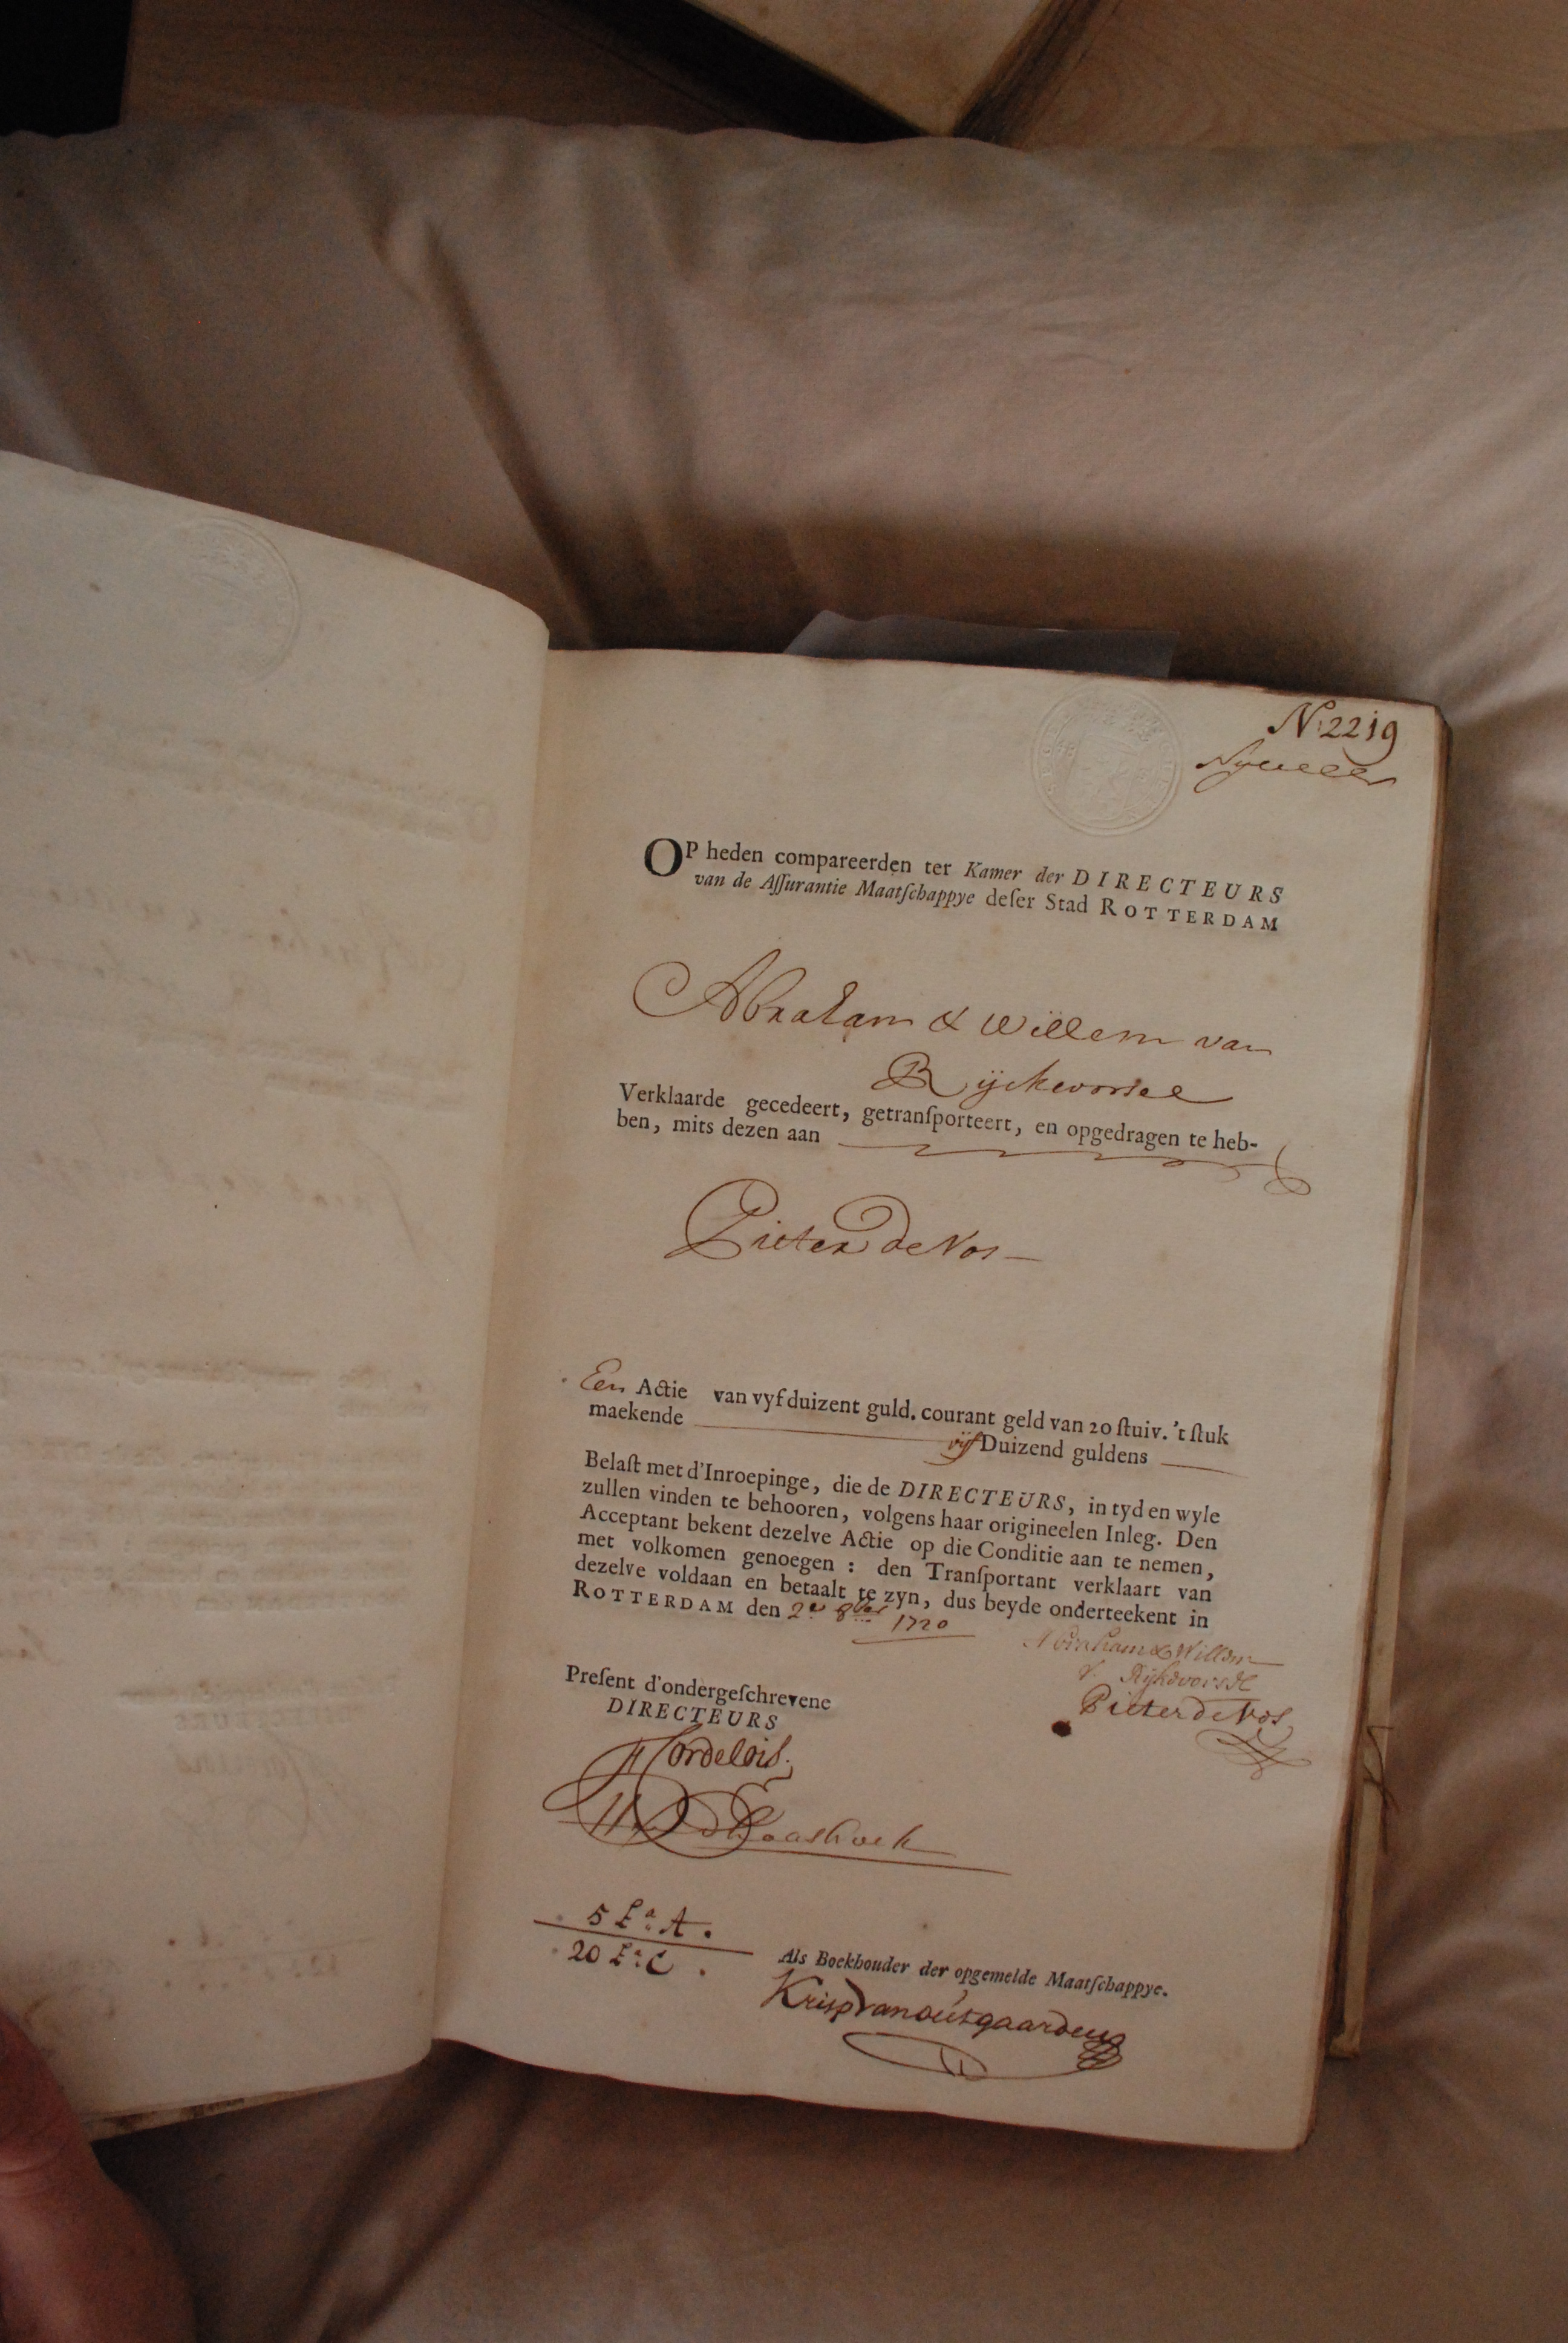 N: 2219
OP heden compareerden ter Kamer der DIRECTEURS
van de Aſſurantie Maatſchappye deſer Stad ROTTERDAM
Abraham & Willem van
Rijckevorsel
Verklaarde gecedeert, getranſporteert, en opgedragen te heb-
ben, mits dezen aan
Pieter de Vos
Een Actie van vyf duizent guld. courant geld van 20 ſtuiv. 't ſtuk
maekende vijf Duizend guldens
Belaſt met d'Inroepinge, die de DIRECTEURS, in tyd en wyle
zullen vinden te behooren, volgens haar origineelen Inleg. Den
Acceptant bekent dezelve Actie op die Conditie aan te nemen,
met volkomen genoegen : den Tranſportant verklaart van
dezelve voldaan en betaalt te zyn, dus beyde onderteekent in
ROTTERDAM den 2en 8ber 1720
Abraham & Willem
v. Rijkevorsel
Pieter de Vos
Preſent d'ondergeſchrevene
DIRECTEURS
5 La A.
20 La C.
Als Boekhouder der opgemelde Maatſchappye.